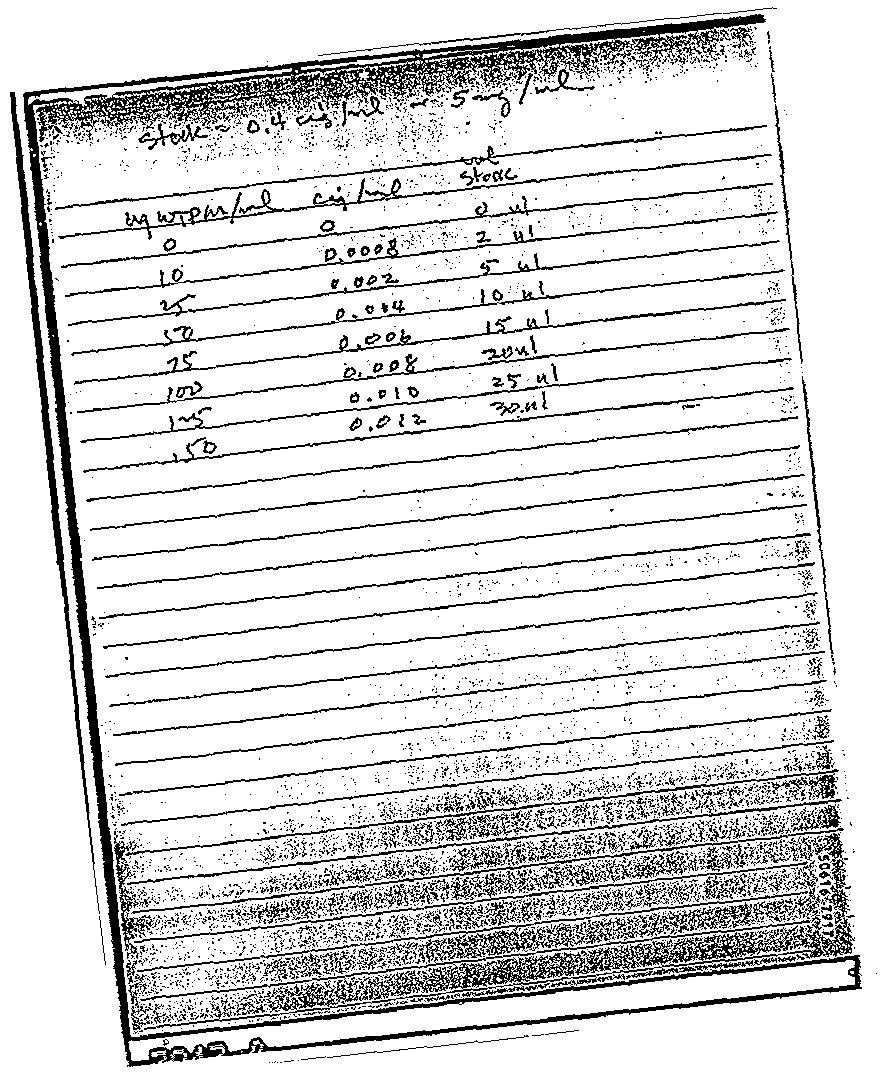 Stock ~ 0.4 cig/ml ~ 5mg/ml
vol
ug WTPM/ml cig/ml Stock
0 0 0 ul
10 0.0008 2 ul
25 0.002 5 ul
50 0.004 10 ul
75 0.006 15 ul
100 0.008 20ul
125 0.010 25 ul
150 0.012 30ul